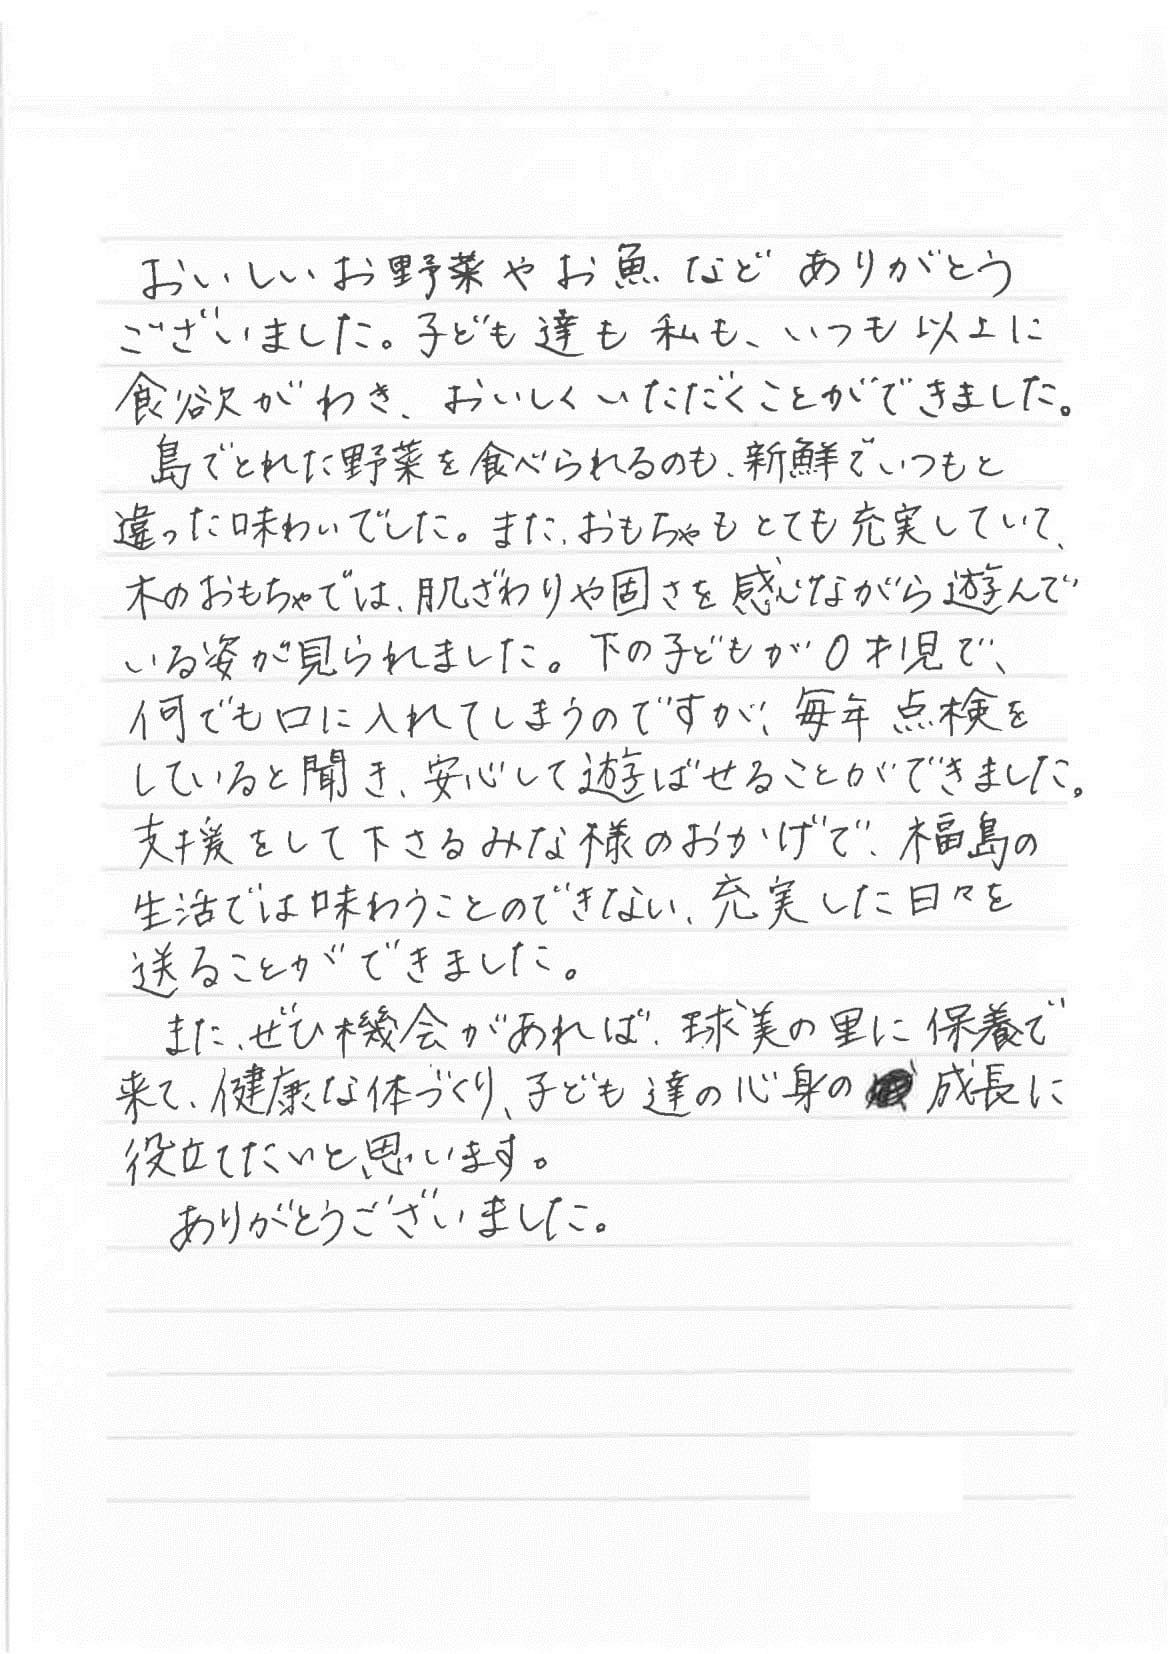 おいしいお野菜やお魚などありがとう
ございました。子ども達も私も、いつも以上に
食欲がわき、おいしくいただくことができました。
島でとれた野菜を食べられるのも、新鮮でいつもと
違った味わいでした。また、おもちゃもとても充実していて、
木のおもちゃでは、肌ざわりや固さを感じながら遊んで
いる姿が見られました。下の子どもが0才児で、
何でも口に入れてしまうのですが、毎年点検を
していると聞き、安心して遊ばせることができました。
支援をして下さるみな様のおかげで、福島の
生活では味わうことのできない、充実した日々を
送ることができました。
また、ぜひ機会があれば、球美の里に保養で
来て、健康な体づくり、子ども達の心身の成長に
役立てたいと思います。
ありがとうございました。